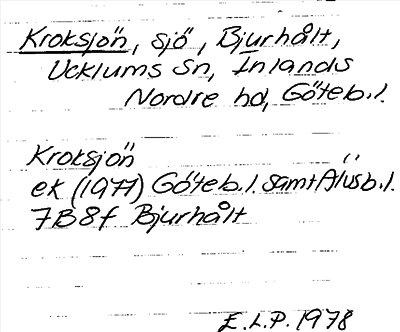 Kroksjön, sjö, Bjurhålt,
Ucklums sn, Inlands
Nordre hd, Göteb.l.
Kroksjön
ek (1977) Göteb.l. samt Älvsb.l.
7B8f Bjurhålt
E.L.P. 1978